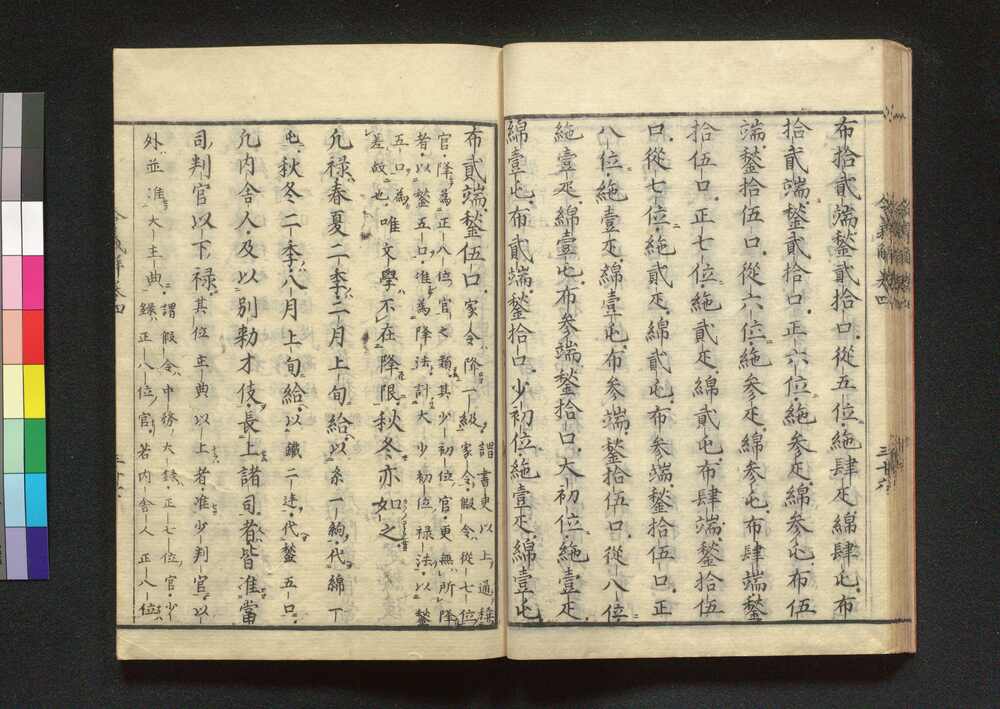 布拾貳端鍫貳拾口從五位絁肆疋綿肆屯布
拾貳端鍫貳拾口正六位絁參疋綿參屯布伍
端鍫拾伍口從六位絁參疋綿參屯布肆端鍫
拾伍口正七位絁貳疋綿貳屯布肆端鍫拾伍
口從七位絁貳疋綿貳屯布參端鍫拾伍口正
八位絁壹疋綿壹屯布參端鍫拾伍口從八位
絁壹疋綿壹屯布參端鍫拾口大初位絁壹疋
綿壹屯布貳端鍫拾口少初位絁壹疋綿壹屯
布貳端鍫伍口家令降一級
謂書吏以上通稱
家令假令從七位
官降爲正八位官之類其少初位官更無所降
者以鍫五口准爲降法計大少初位祿法以鍫
五口爲
差故也
唯文學不在降限秋冬亦如之
凡祿春夏二季二月上旬給以糸一絇代綿一
屯秋冬二季八月上旬給以鐵二廷代鍫五口
凡内舍人及以別勅才伎長上諸司者皆准當
司判官以下祿其位主典以上者准少判官以
外並准大主典
謂假令中務大錄正七位官少
錄正八位官若内舍人正八位